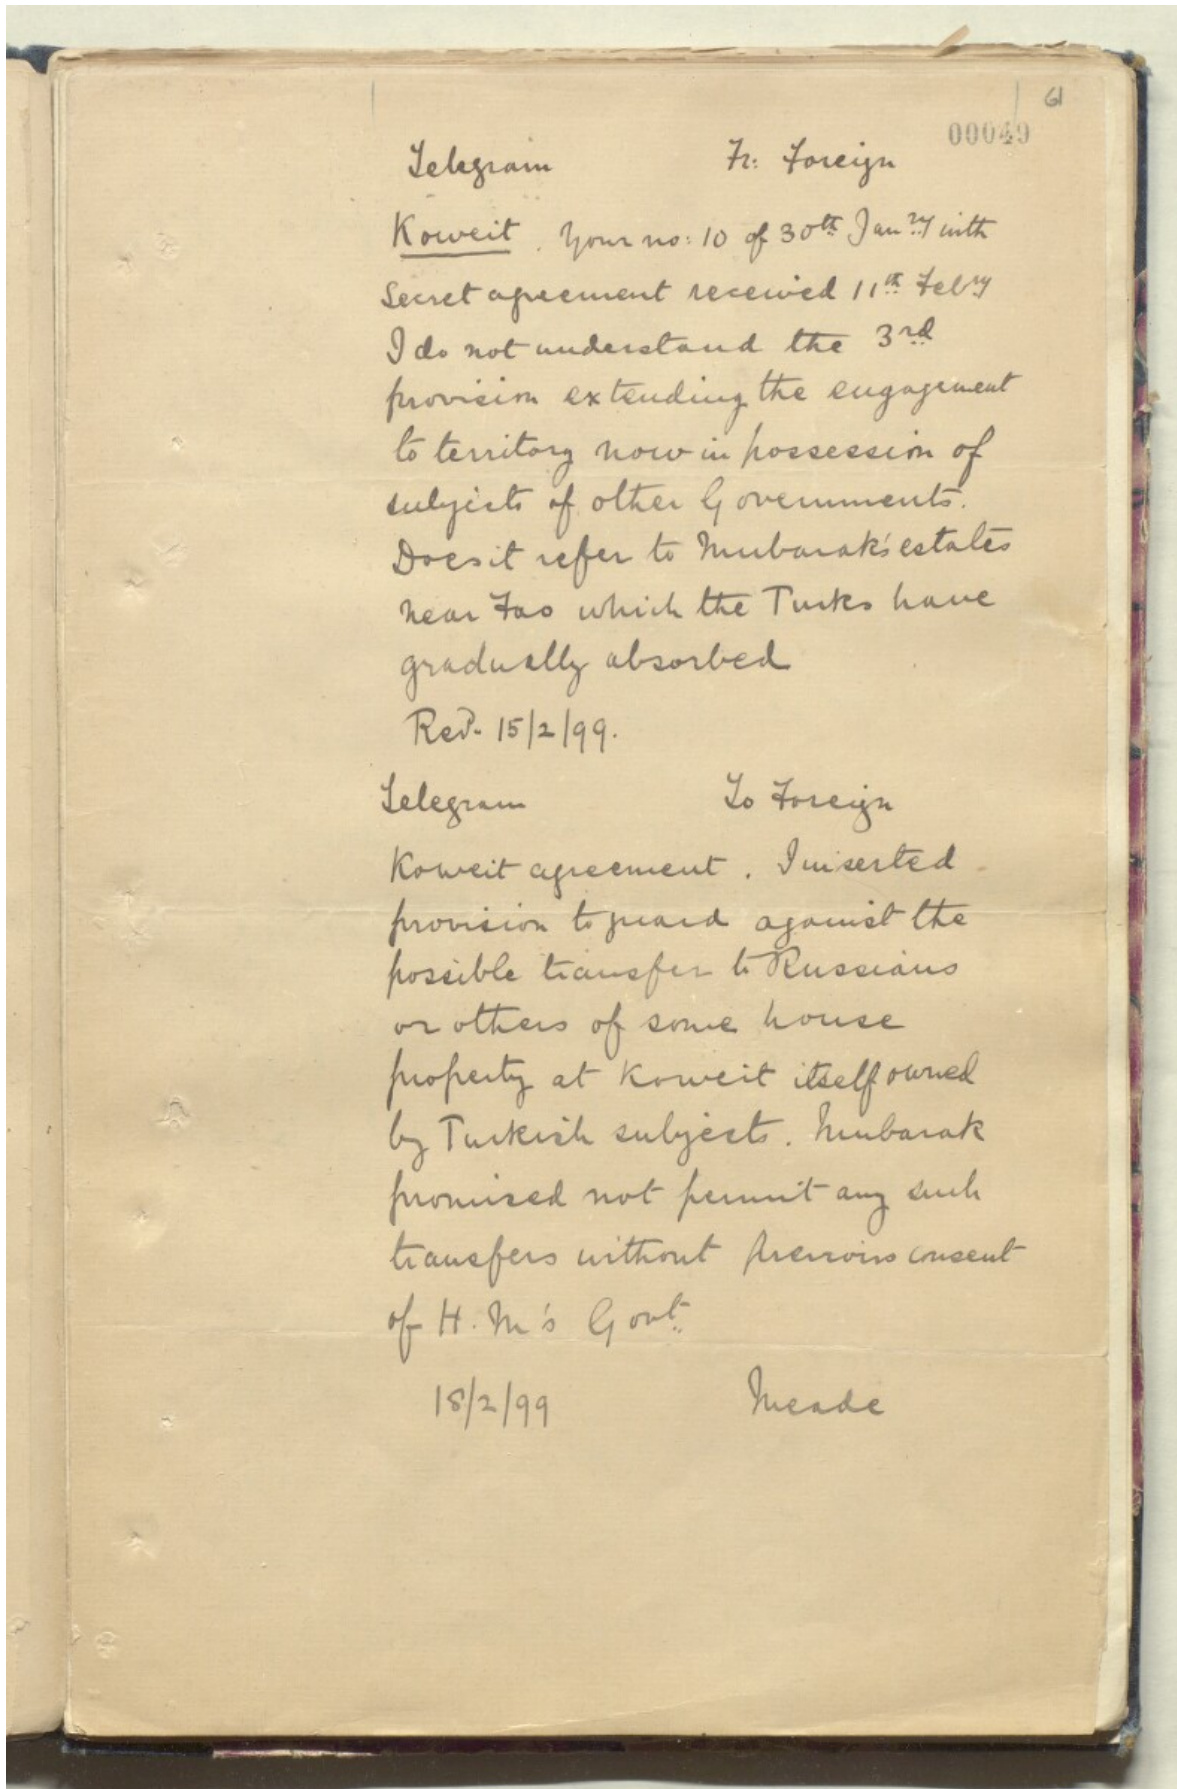 61
00049
Telegram Fr: Foreign
Koweit. Your no: 10 of 30th Janry with
Secret agreement received 11th Febry
I do not understand the 3rd
provision extending the engagement
to territory now in possession of
subjects of other Governments.
Does it refer to Mubarak's estates
near Fao which the Turks have
gradually absorbed
Recd. 15/2/99.
Telegram To Foreign
Koweit agreement. I inserted
provision to guard against the
possible transfer to Russians
or others of some house
property at Koweit itself owned
by Turkish subjects. Mubarak
promised not permit any such
transfers without previous consent
of H. M's Govt.
18/2/99 Meade